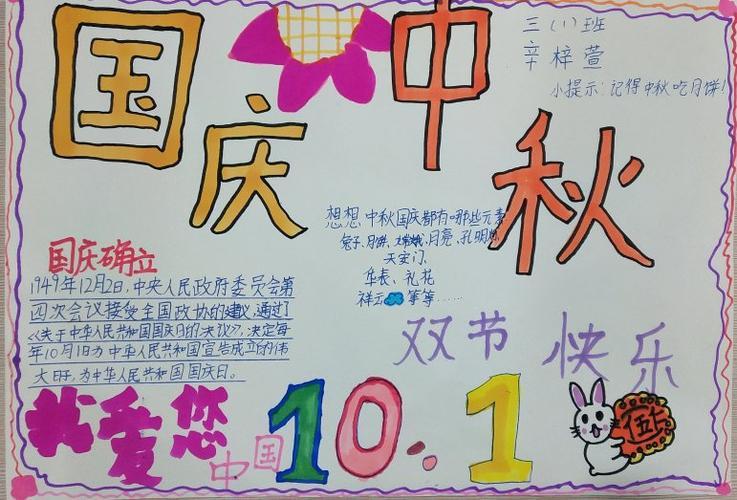 国庆
中秋
三(1)班
辛梓萱
小提示:记得中秋吃月饼!
想想中秋国庆都有哪些元素
兔子、月饼、嫦娥、月亮、孔明灯
天安门、
华表、礼花
祥云 等等……
国庆确立
1949年12月2日,中央人民政府委员会第
四次会议接受全国政协的建议,通过了
《关于中华人民共和国国庆日的决议》,决定每
年10月1日为中华人民共和国宣告成立的伟
大日子,为中华人民共和国国庆日。
双节快乐
我爱您
中国
10.1